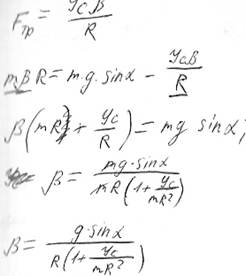 Fтр = YcB/R
mβR = m·g·sinα - YcB/R
β(mR + Yc/R) = mg sinα;
β = mg·sinα / mR(1 + Yc/mR²)
β = g·sinα / R(1 + Yc/mR²)